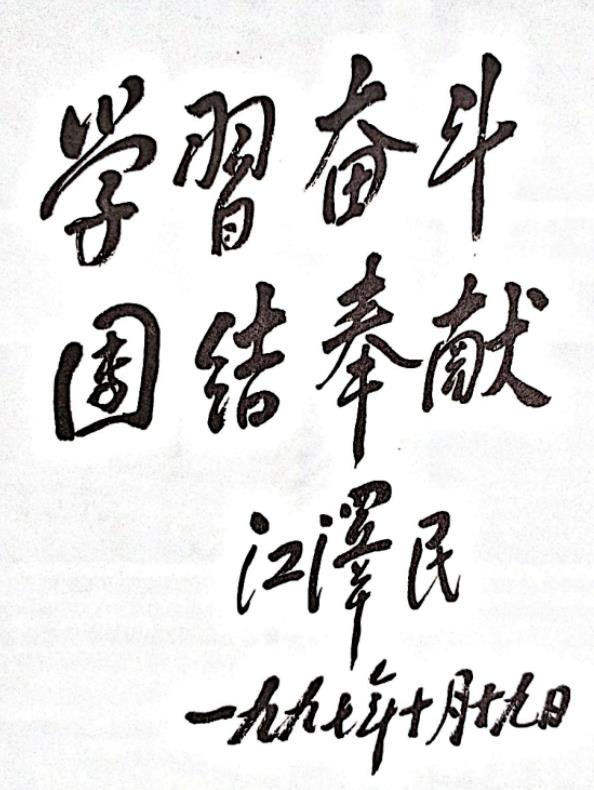 学習奋斗
團结奉献
江澤民
一九九七年十月十九日